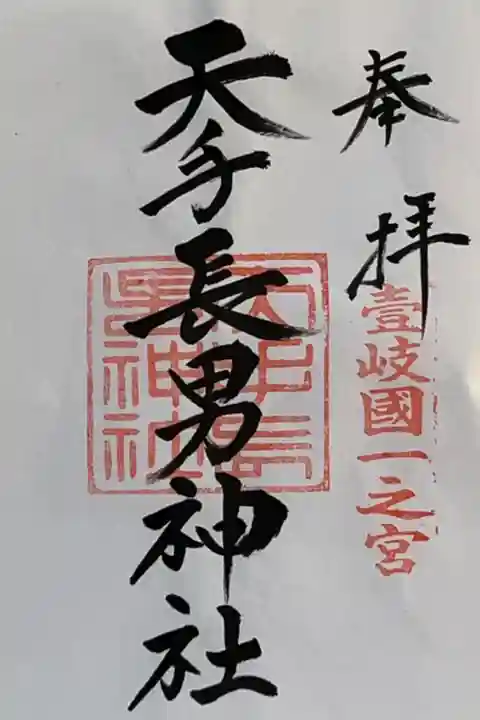 奉拝
壹岐國一之宮
天手長男神社
天手長
男神社